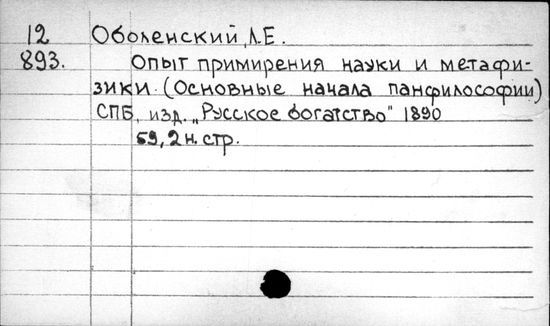 12 Оболенский, Л.Е.
893. Опыт примирения науки и метафи-
зики (Основные начала панфилософии)
СПБ, изд. „Русское богатство" 1890
59, 2 н. стр.